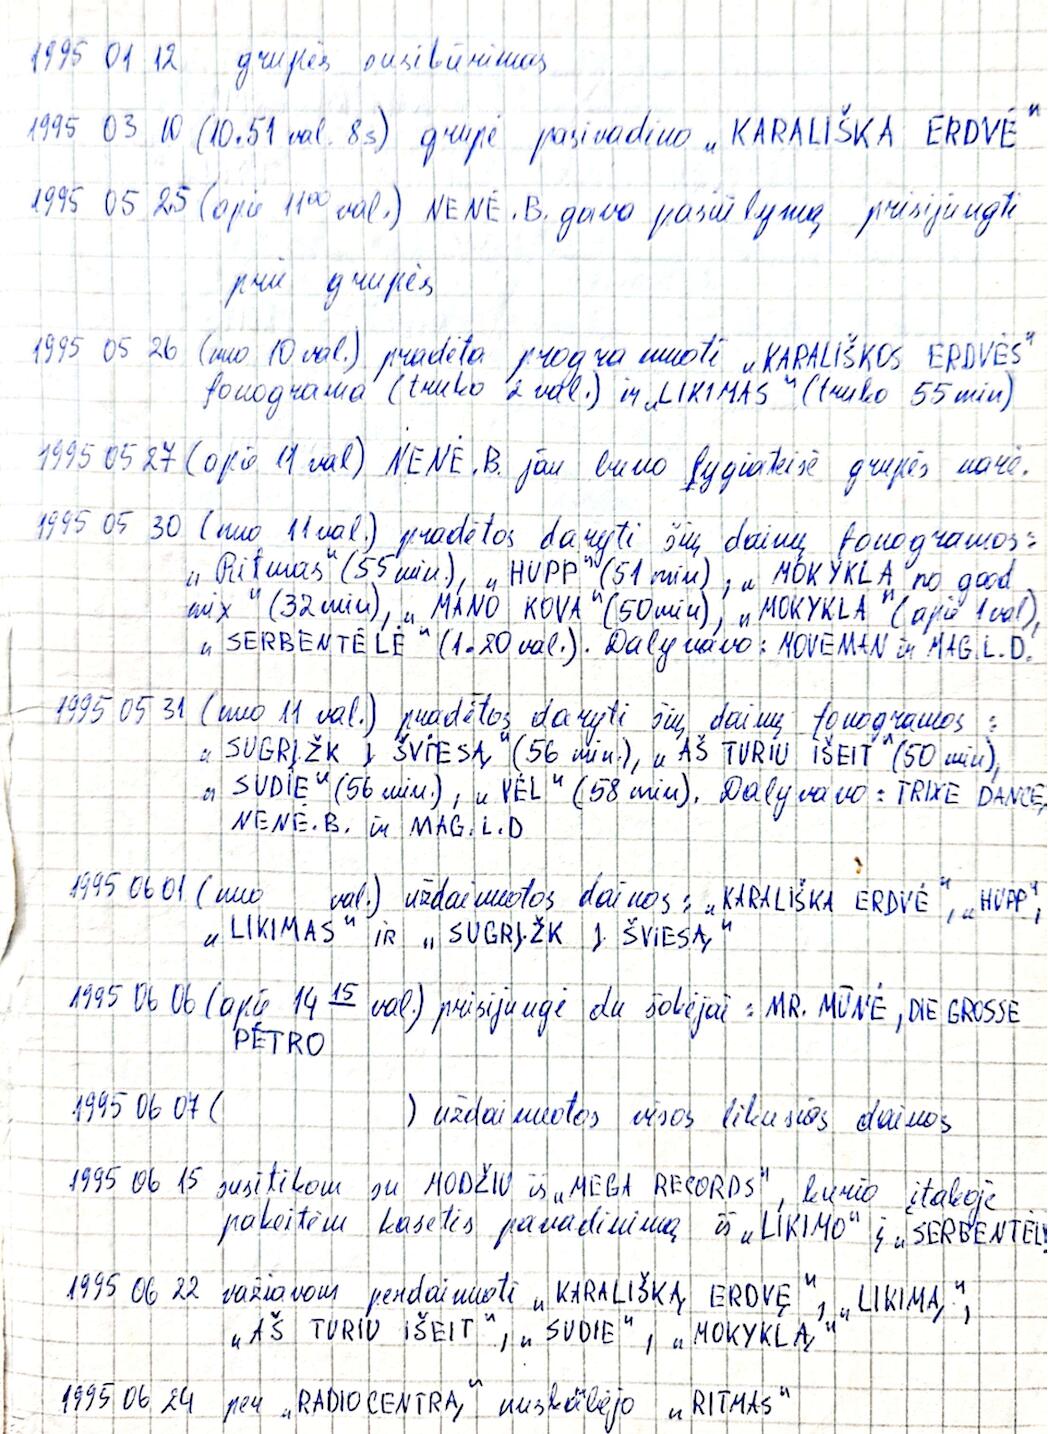 1995 01 12 grupės susibūrimas
1995 03 10 (10.51 val. 8s) grupė pasivadino „KARALIŠKA ERDVĖ"
1995 05 25 (apie 11⁰⁰ val.) NENĖ.B. gavo pasiūlymą prisijungti
prie grupės
1995 05 26 (nuo 10 val.) pradėta programuoti „KARALIŠKOS ERDVĖS"
fonograma (truko 2 val.) ir „LIKIMAS" (truko 55 min)
1995 05 27 (apie 11 val) NENĖ.B. jau buvo lygiateisė grupės narė.
1995 05 30 (nuo 11 val.) pradėtos daryti šių dainų fonogramos:
„Ritmas" (55 min.), „HUPP" (51 min), „MOKYKLA no good
mix" (32 min), „MANO KOVA" (50 min), „MOKYKLA" (apie 1 val),
„SERBENTĖLĖ" (1.20 val.). Dalyvavo: MOVEMAN ir MAG.L.D.
1995 05 31 (nuo 11 val.) pradėtos daryti šių dainų fonogramos:
„SUGRĮŽK Į ŠVIESĄ" (56 min.), „AŠ TURIU IŠEIT" (50 min),
„SUDIE" (56 min.), „VĖL" (58 min). Dalyvavo: TRIXE DANCE,
NENĖ.B. ir MAG.L.D
1995 06 01 (nuo val.) uždainuotos dainos: „KARALIŠKA ERDVĖ", „HUPP",
„LIKIMAS" IR „SUGRĮŽK Į ŠVIESĄ"
1995 06 06 (apie 14 15 val.) prisijungė du šokėjai: MR. MŪNĖ, DIE GROSSE
PĖTRO
1995 06 07 ( ) uždainuotos visos likusios dainos
1995 06 15 susitikom su MODŽIU iš „MEGA RECORDS", kurio įtakoje
pakeitėm kasetės pavadinimą iš „LIKIMO" į „SERBENTĖLĘ
1995 06 22 važiavom perdainuoti „KARALIŠKĄ ERDVĘ", „LIKIMĄ",
„AŠ TURIU IŠEIT", „SUDIE", „MOKYKLĄ"
1995 06 24 per „RADIOCENTRĄ" nuskambėjo „RITMAS"